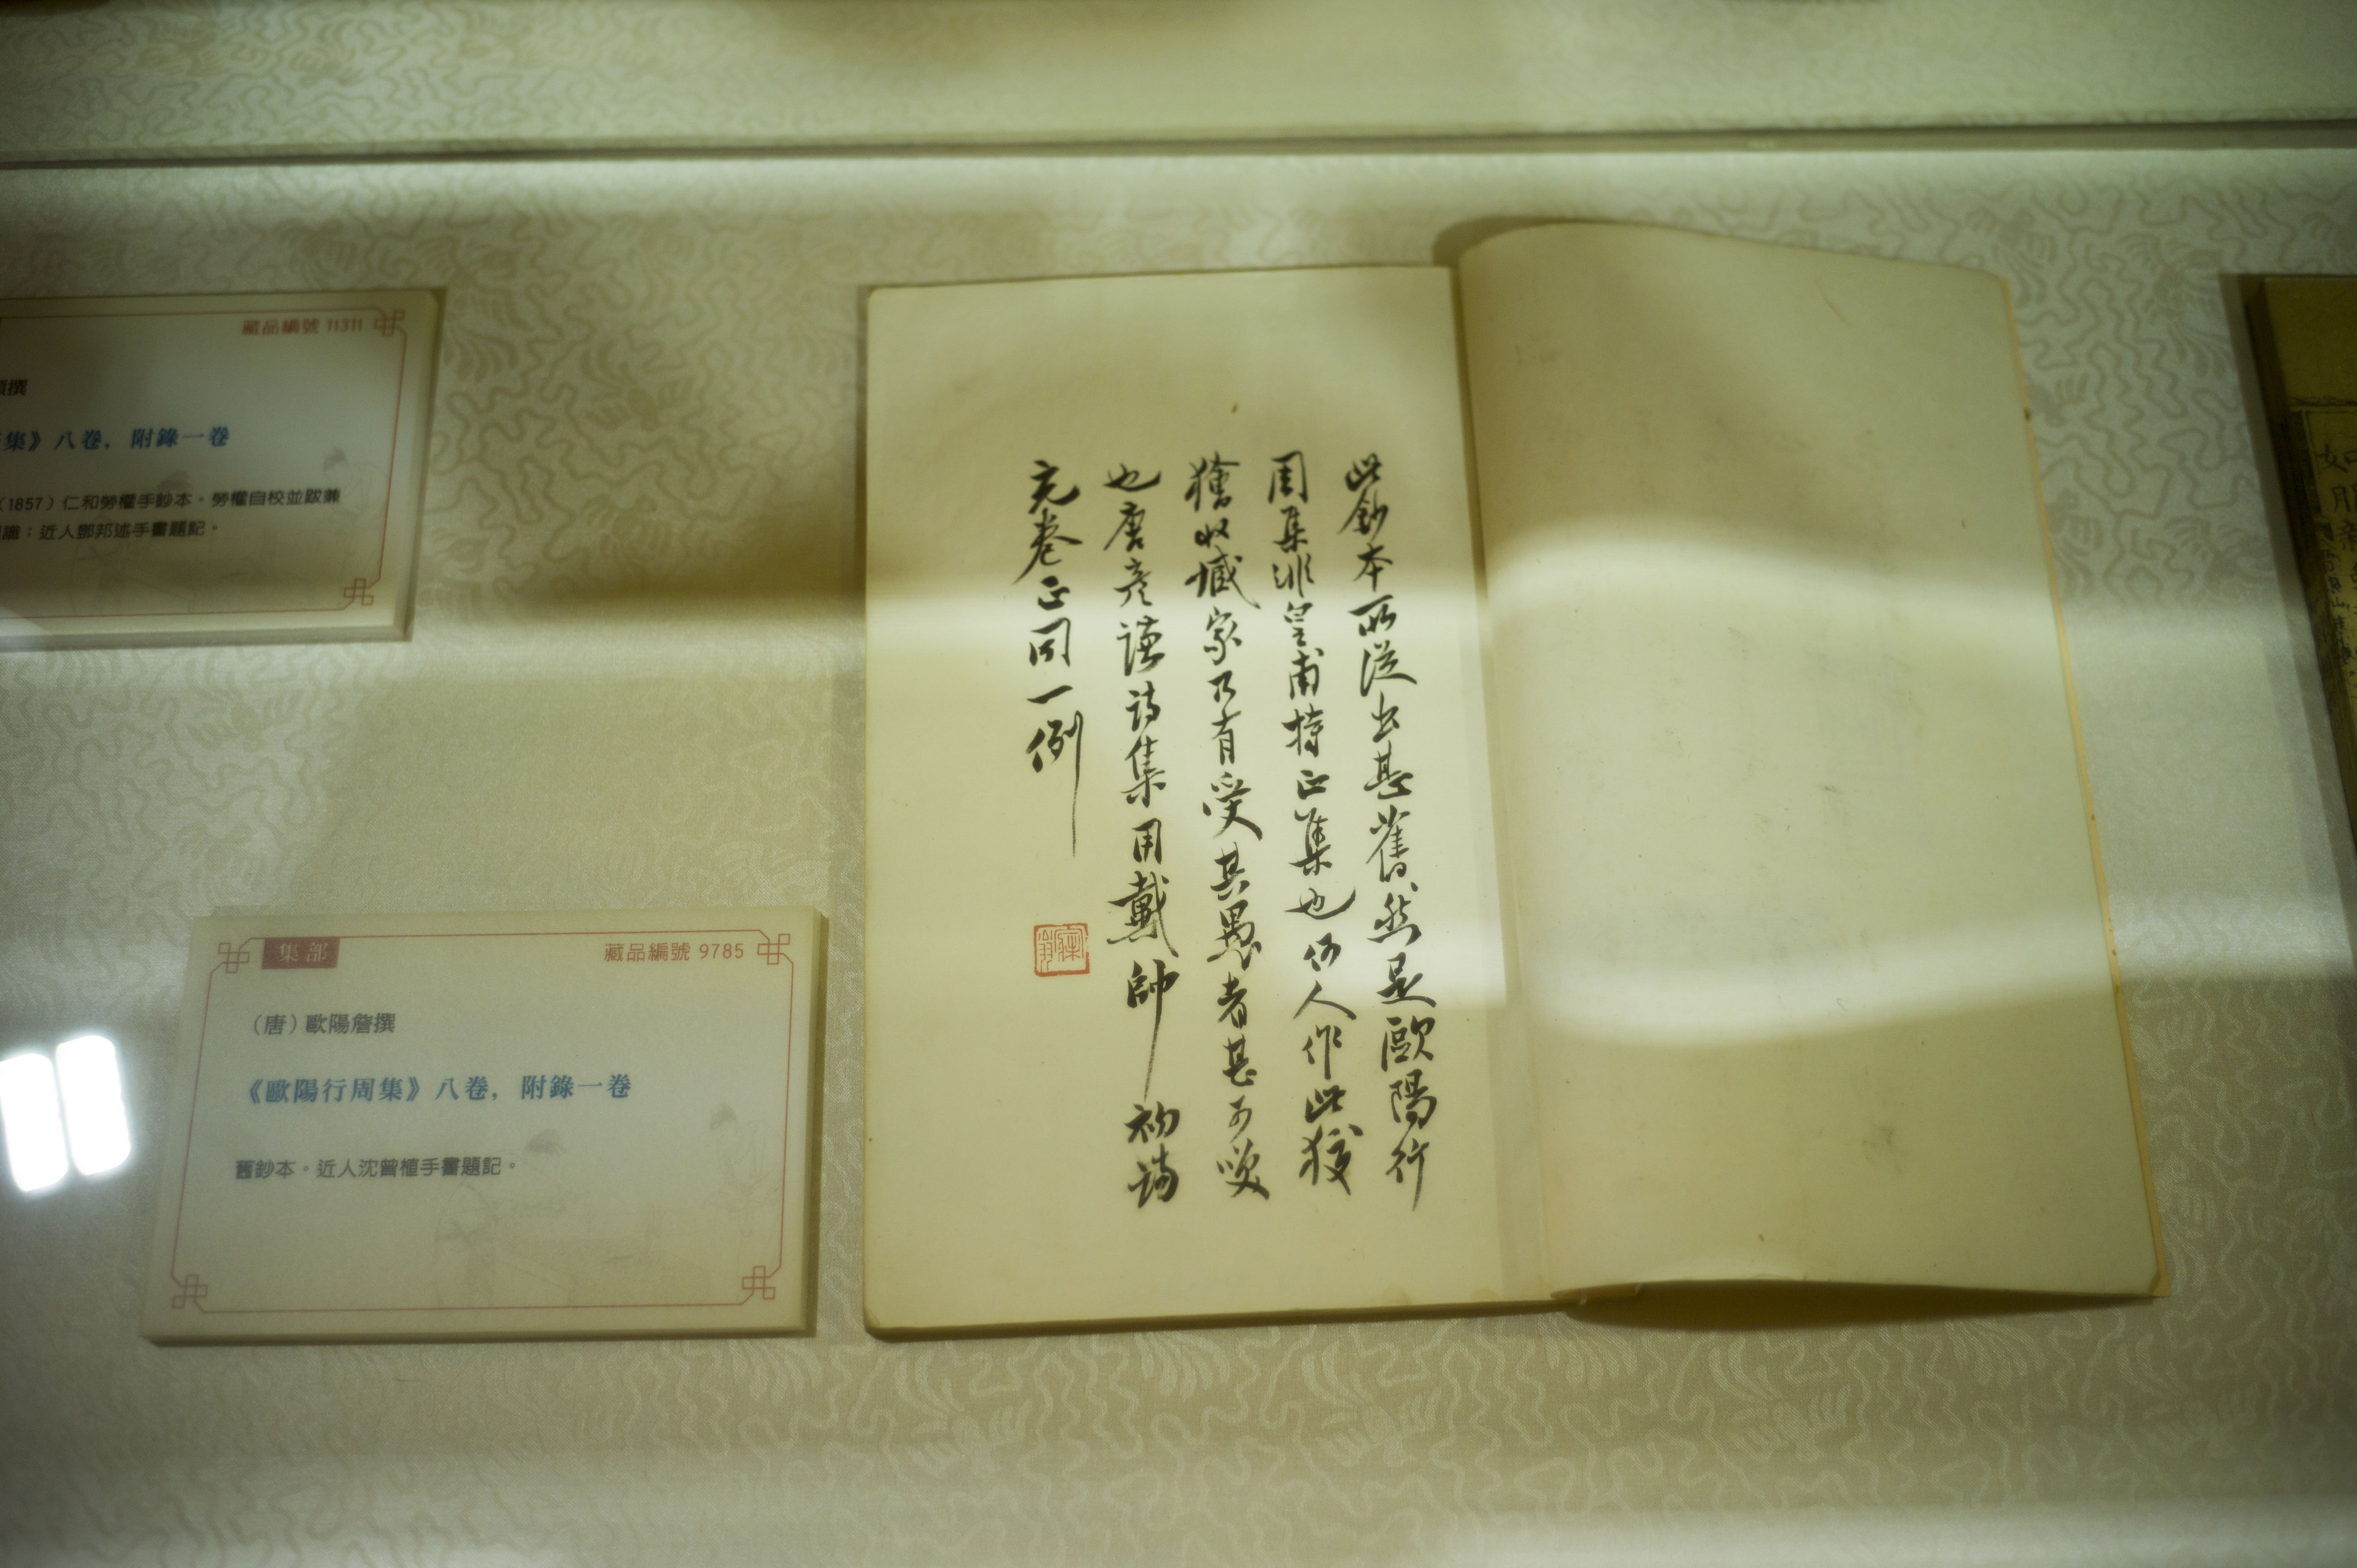 藏品編號 11311
撰
集》八卷，附錄一卷
（1857）仁和勞權手鈔本。勞權自校並跋兼
識；近人鄧邦述手書題記。
集部
藏品編號 9785
（唐）歐陽詹撰
《歐陽行周集》八卷，附錄一卷
舊鈔本。近人沈曾植手書題記。
此鈔本所從出甚舊然是歐陽行
周集非皇甫持正集也何人作此狡
獪收臧家乃有受其愚者甚可笑
也唐彥謙詩集用戴帥初詩
充卷正同一例